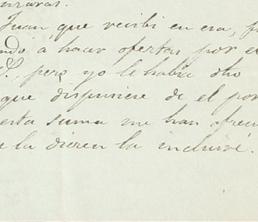 Juan, que recibi en era, p
ndo á hacer ofertas por e
pero yo le habia dho
que dispusiere de el por
esta suma me han ofrec
e la dieren la inclusive.